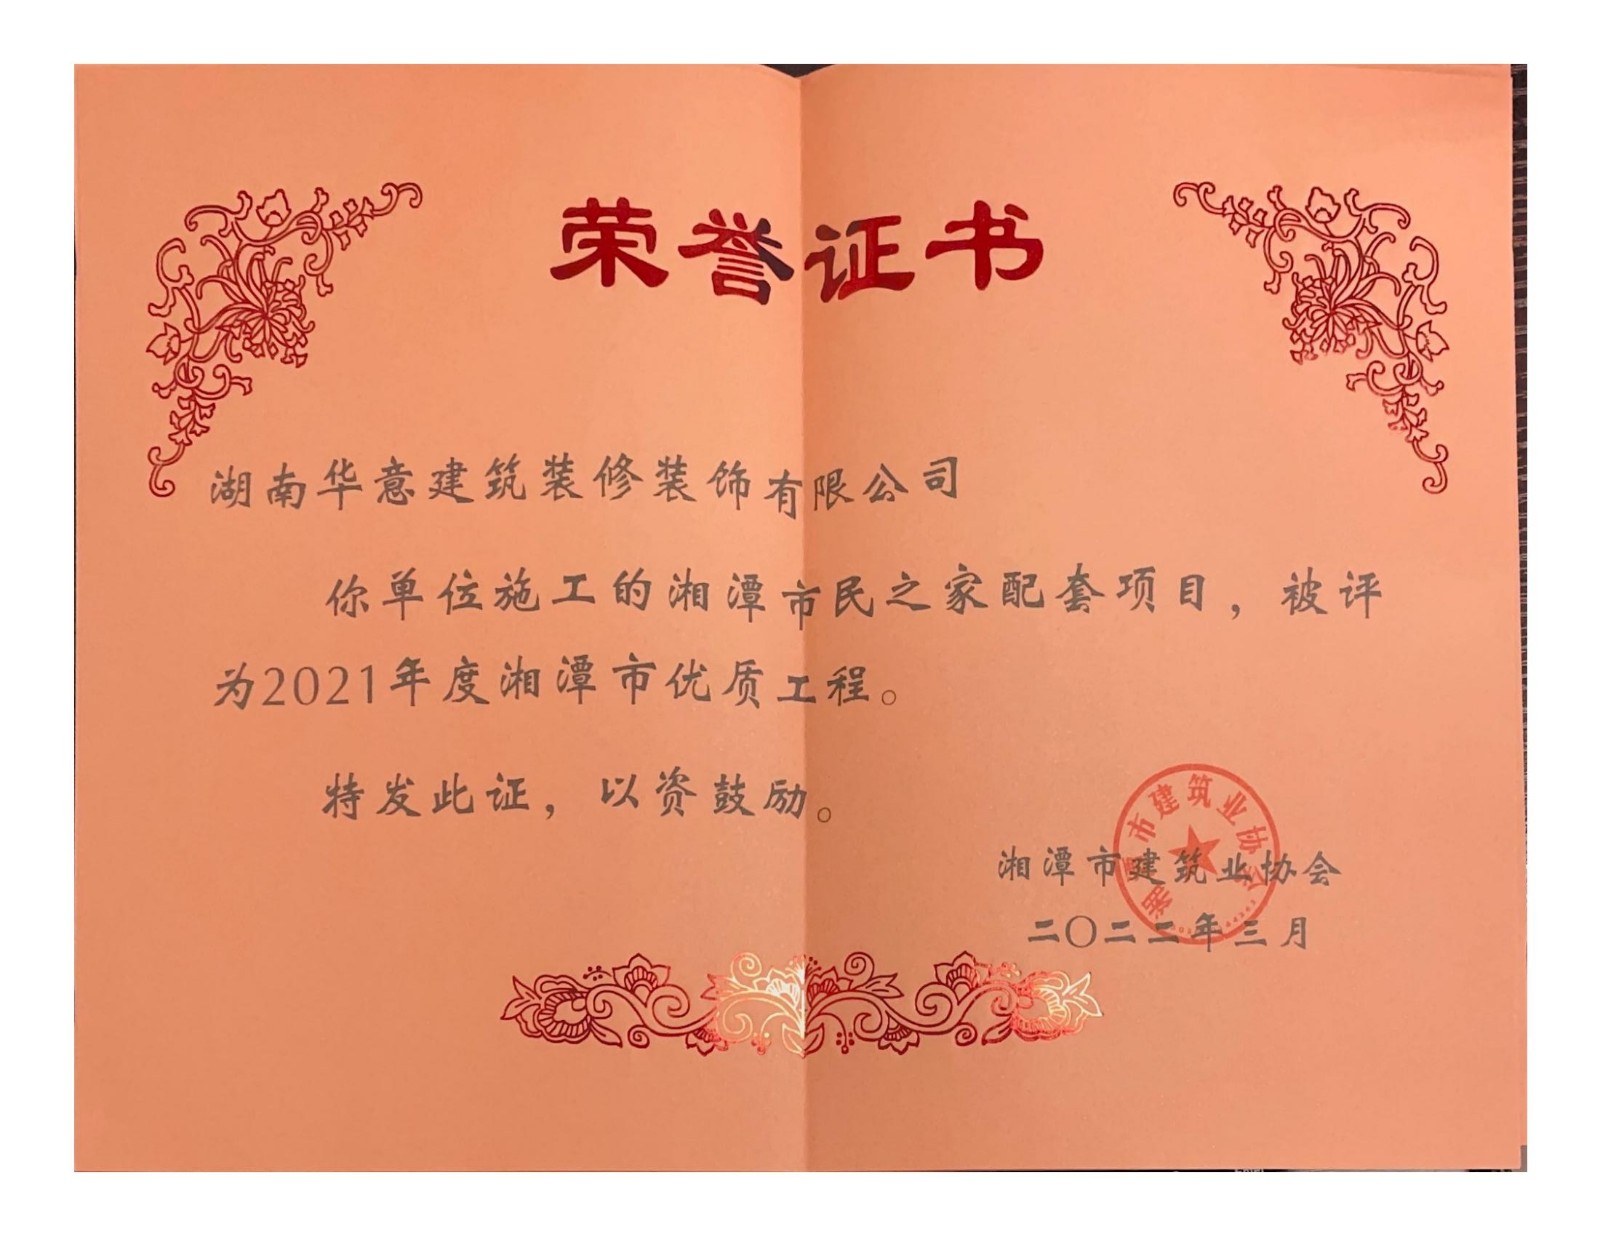 荣誉证书
湖南华意建筑装修装饰有限公司
你单位施工的湘潭市民之家配套项目，被评
为2021年度湘潭市优质工程。
特发此证，以资鼓励。
湘潭市建筑业协会
湘潭市建筑业协会
二〇二二年三月